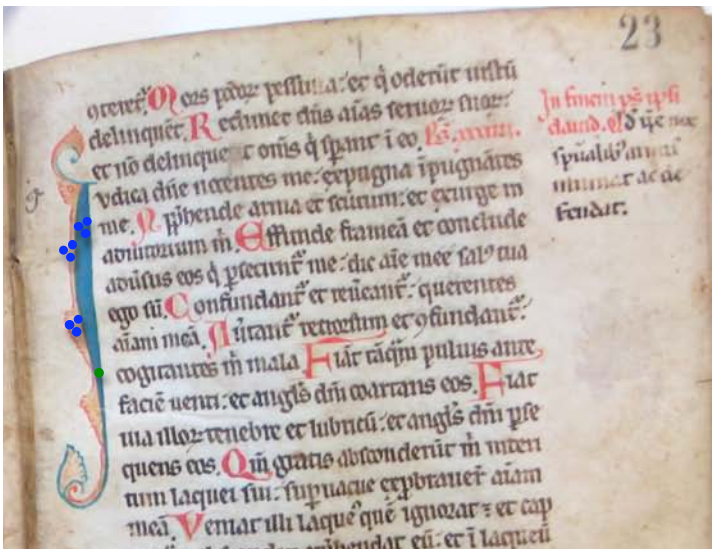 23
ꝯteret᷑. Mors pctōꝝ pessima: et q̇ oderūt iustū
delinquēt. Redimet dn̄s aīas seruoꝝ suoꝝ:
et nō delinquent om̄s q̇ sꝑant ī eo. Ps. xxxiiii.
Iudica dn̄e nocentes me: expugna īpugnātes
me. Apꝑhende arma et scutum: et exurge in
adiutorium m̄. Effunde frameā et conclude
aduersus eos q̇ ꝑsecunt᷑ me: dic aīe mee salꝰ tua
ego sū. Confundant᷑ et reueant᷑: querentes
aīam meā. Auertant᷑ retrorsum et ꝯfundant᷑:
cogitantes m̄ mala. Fiāt tāq̄m puluis ante
faciē uenti: et angl̄s dn̄i coartans eos. Fiat
uia illoꝝ tenebre et lubricū: et angl̄s dn̄i ꝑse
quens eos. Qm̄ gratis absconderūt m̄ interi
tum laquei sui: suꝑuacue exꝓbrauer̄t aīam
meā. Veniat illi laqueꝰ quē ignorat ⁊ et cap
eū: et ī laqueū
In finem ps̄ ipsi
dauid.
sp̄ualibꝰ armis
muniat ac de
fendat.